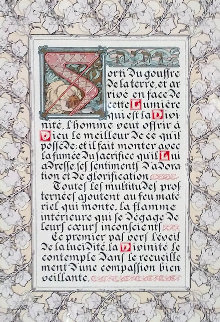 Sorti du gouffre
de la terre, et ar
rivé en face de
cette Lumière
qui est la Divi
nité, l'homme veut offrir à
Dieu le meilleur de ce qu'il
possède, et il fait monter avec
la fumée du sacrifice qu'il Lui
adresse, ses sentiments d'adora
tion et de glorification
Toutes les multitudes pros
ternées ajoutent au feu maté
riel qui monte, la flamme
intérieure qui se dégage de
leurs cœurs inconscients
Ce premier pas vers l'éveil
de la lucidité, la Divinité le
contemple dans le recueille
ment d'une compassion bien
veillante.